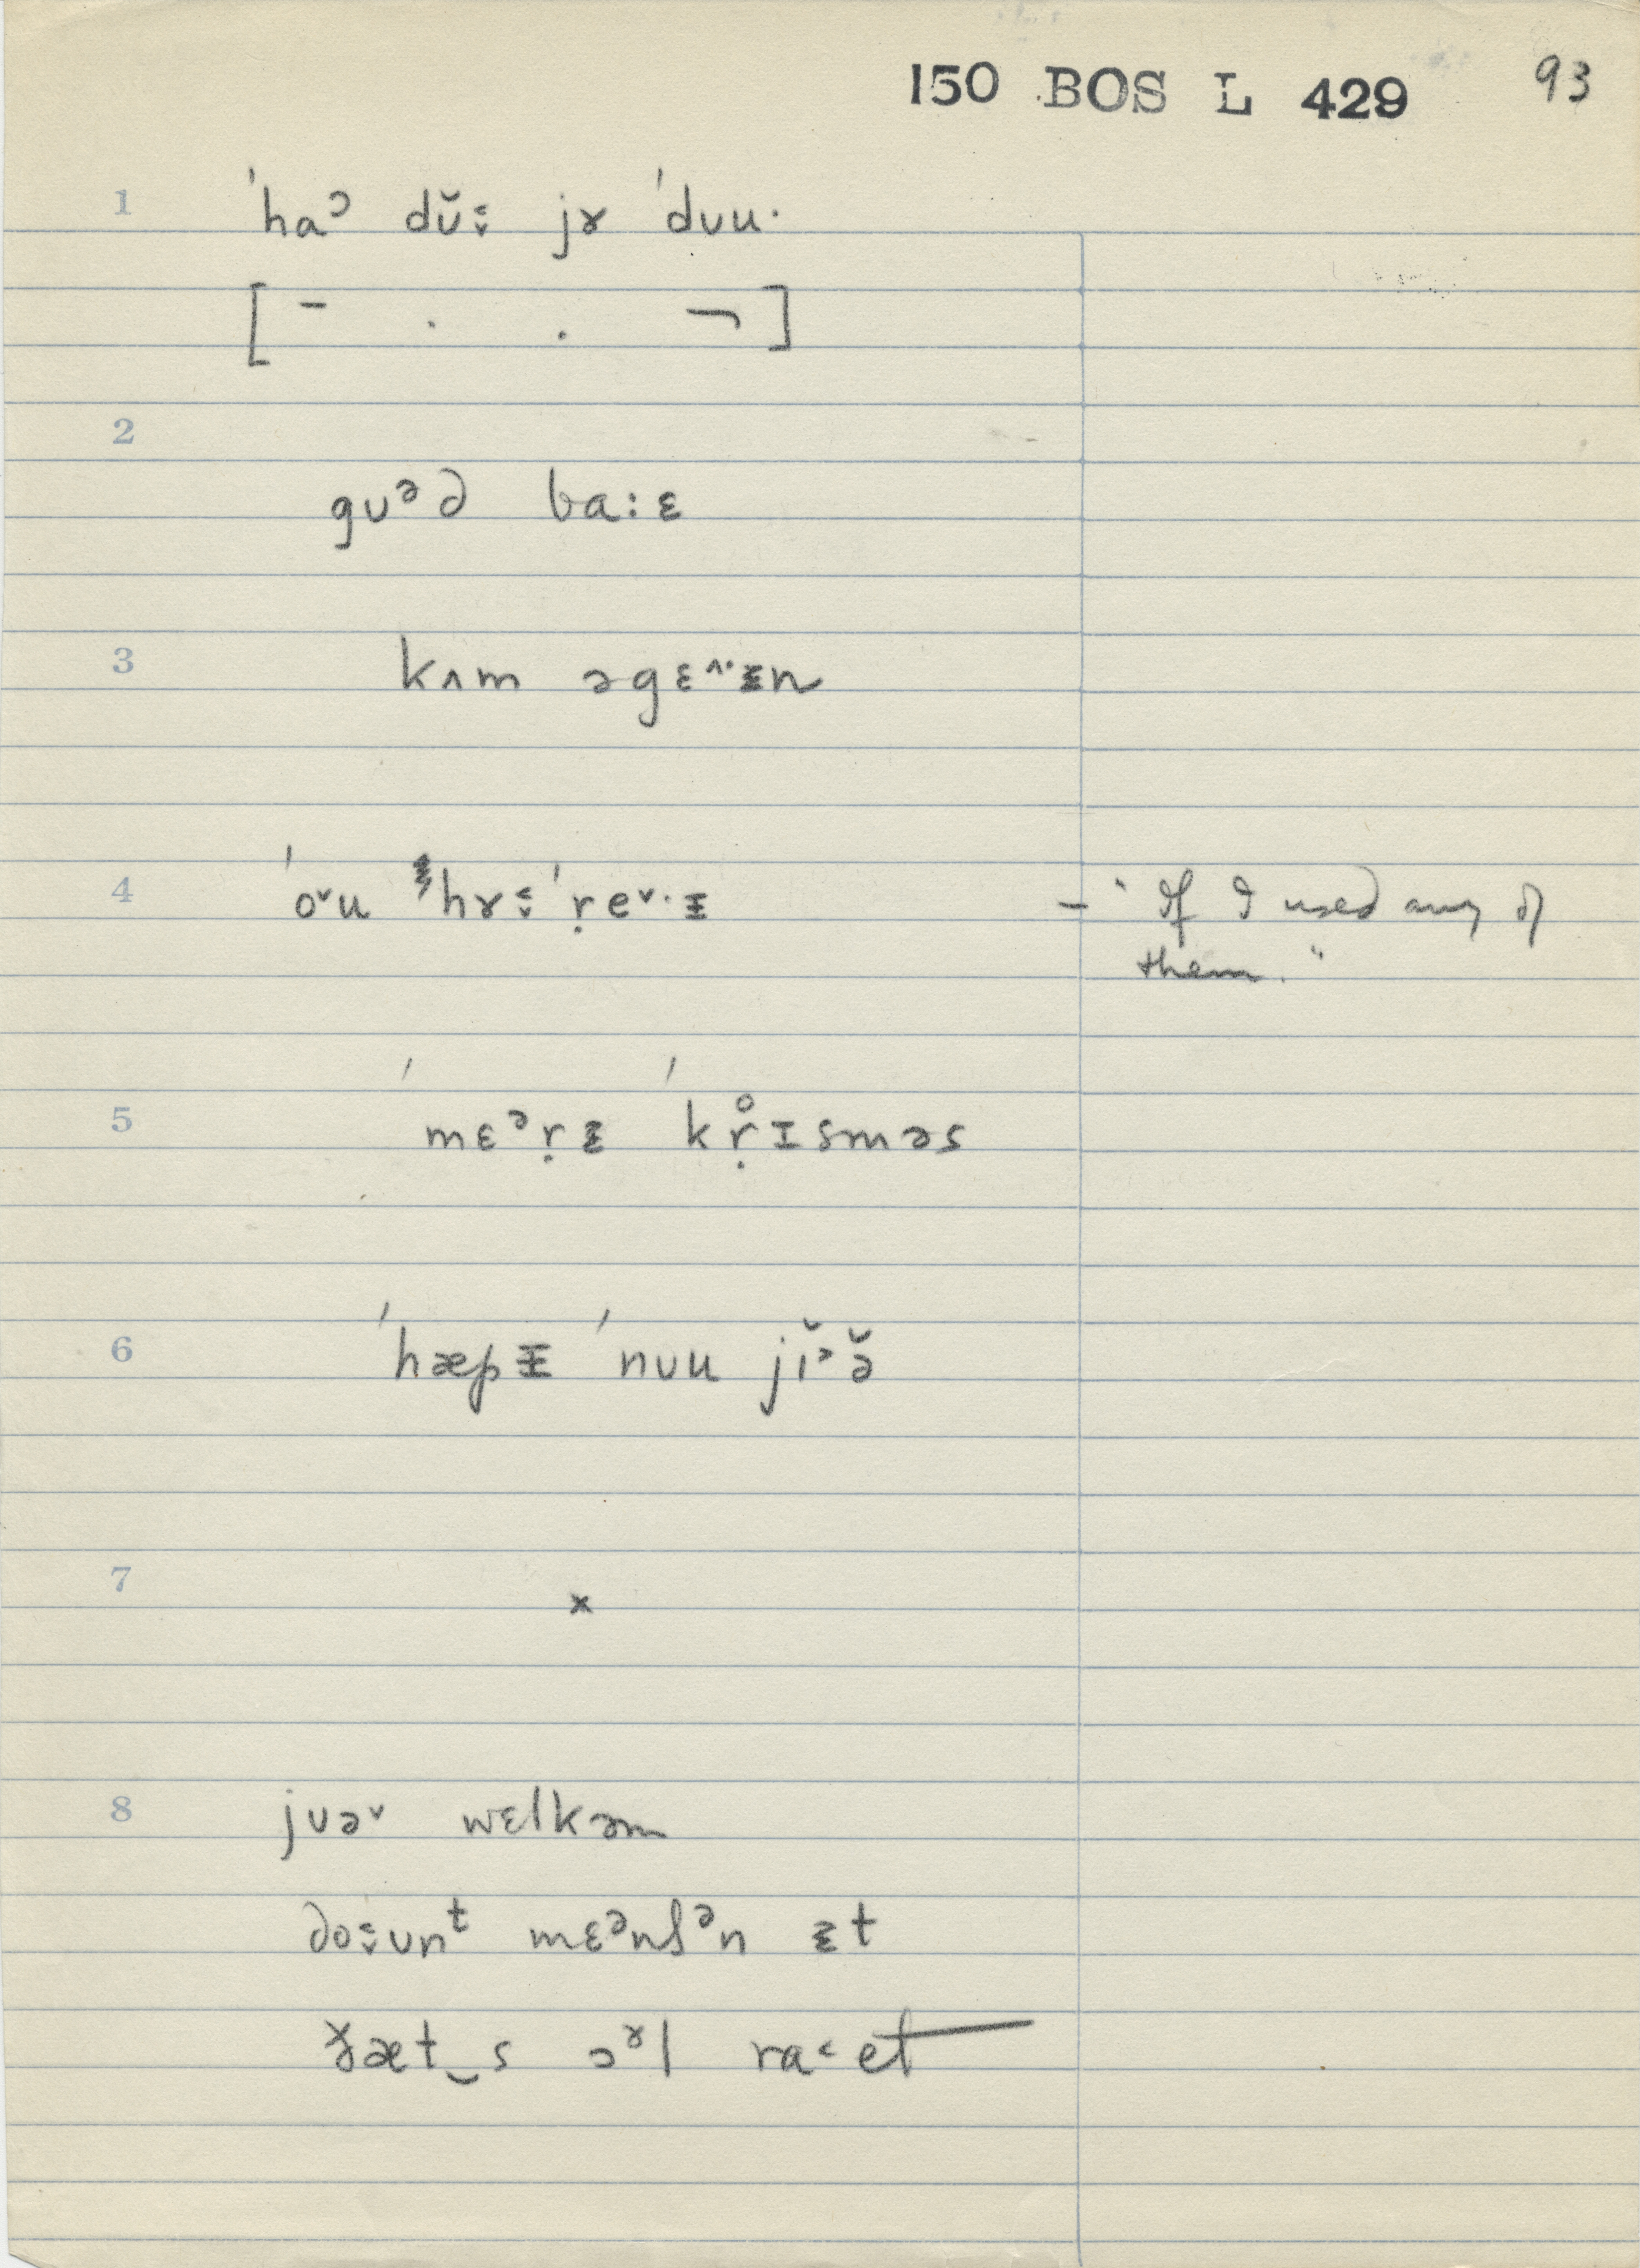 150 BOS L 429 93
1 ˈhaᵓ dŭ˞ jɤ ˈdʊu·
[ – . . ¬ ]
2
gʊᵊd ba:ɛ
3 kʌm əgɛ^·ɪn
4 ˈo˅u hɤ ˈṛe˅·ɪ – "If I used any of
them."
5 ˈmɛᵊṛɪ ˈkṛ̊ɪsməs
6 ˈhæpɪ ˈnʊu jĭᵊə̆
7 ×
8 jʊə˅ wɛlkəm
doʊnᵗ mɛᵊnʃᵊn ɪt
ðæt‿s ɔˠl ra˂et